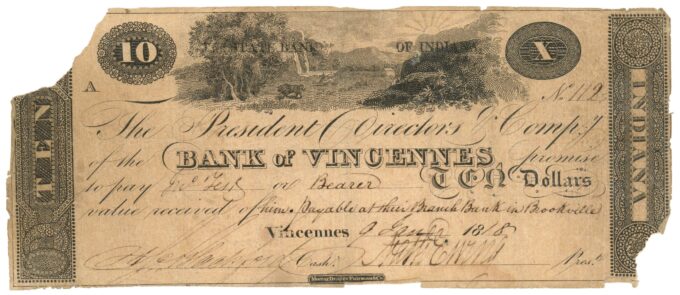 10
THE STATE BANK OF INDIANA
X
A
No. 112
The President Directors & Compy.
of the BANK of VINCENNES promise
to pay or Bearer TEN Dollars
value received of him. Payable at their Branch Bank in Brookville
Vincennes 9 1818
Cash. Pres.t
TEN
INDIANA